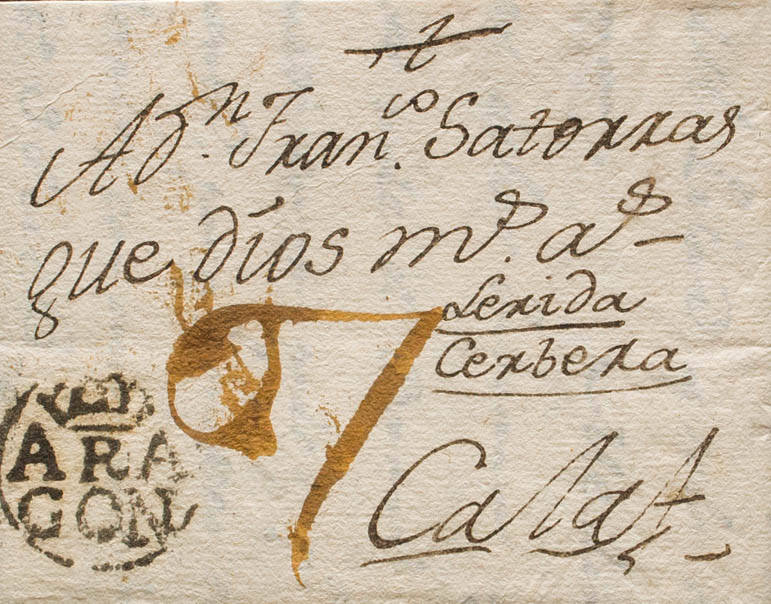 A Dn. Franco. Satorras
que dios ms. as.
Lerida
Cerbera
ARA
GON
7